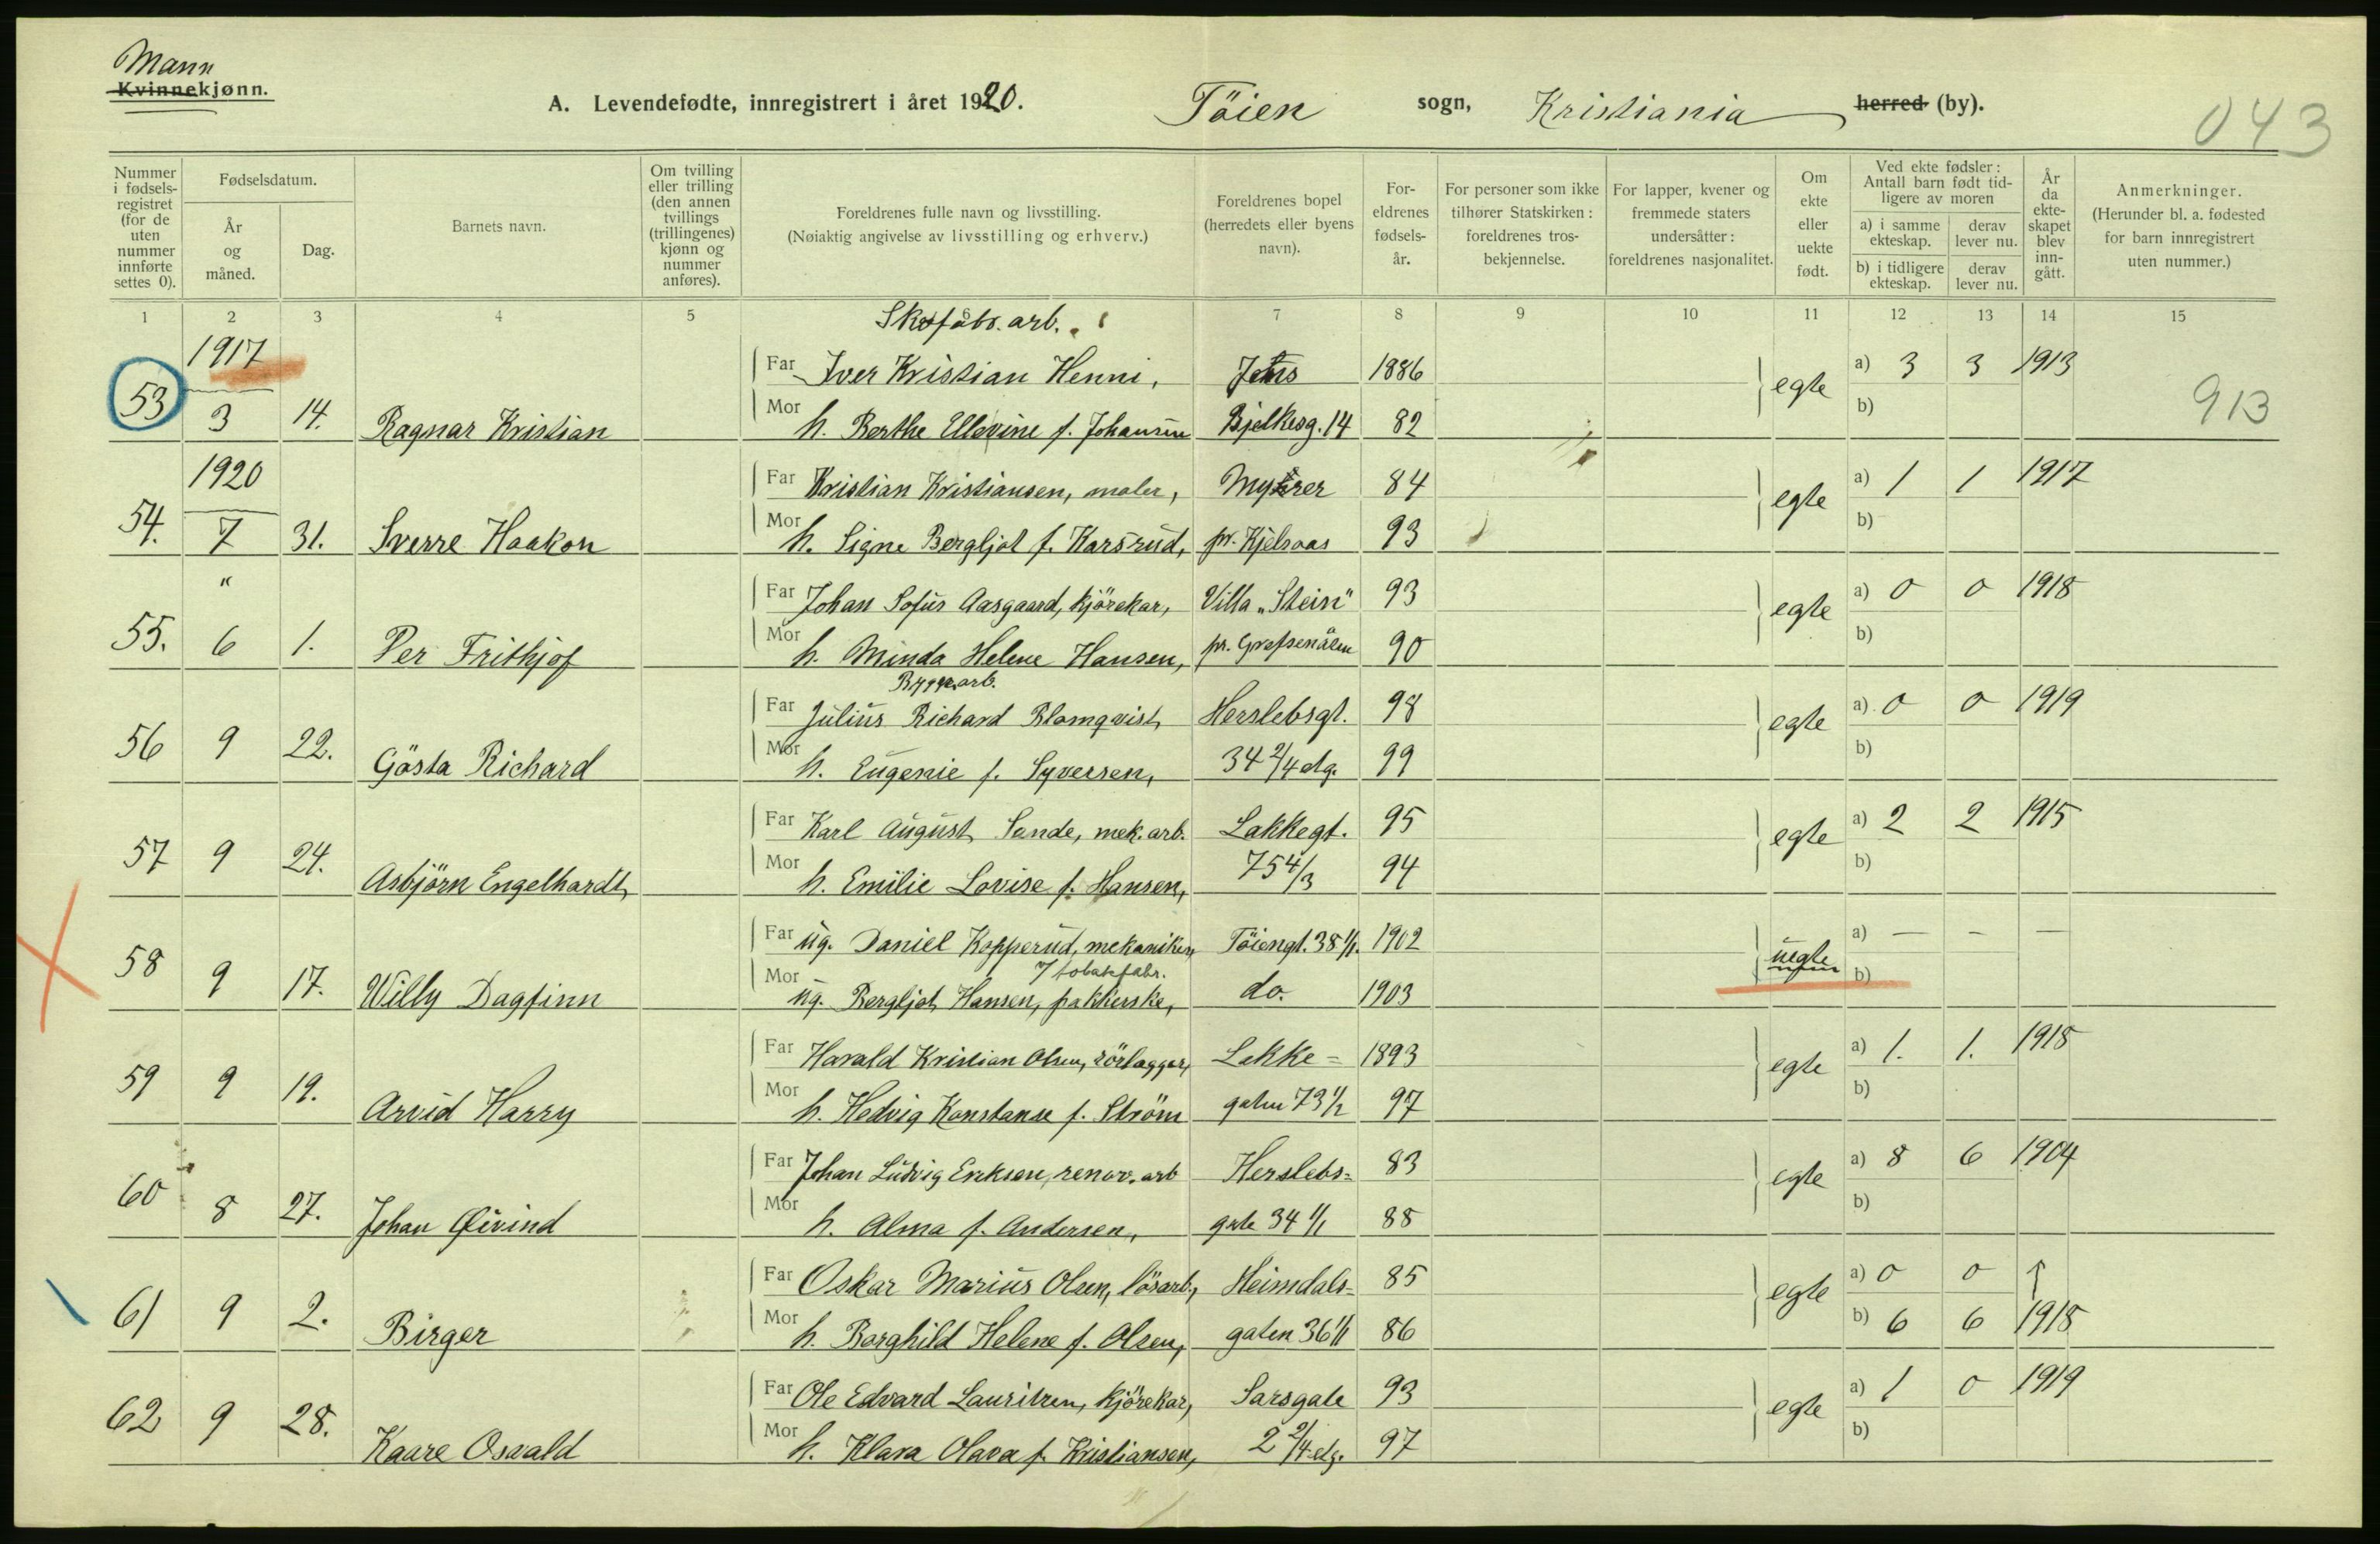 Mann
Kvinnekjønn.
A. Levendefødte, innregistrert i året 1920. Töien sogn, Kristiania herred (by).
043
Nummer i fødsels-registret (for de uten nummer innførte settes 0).
Fødselsdatum.
År og måned.
Dag.
Barnets navn.
Om tvilling eller trilling (den annen tvillings (trillingenes) kjønn og nummer anføres).
Foreldrenes fulle navn og livsstilling.
(Nøiaktig angivelse av livsstilling og erhverv.)
Foreldrenes bopel (herredets eller byens navn).
For-eldrenes fødsels-år.
For personer som ikke tilhører Statskirken: foreldrenes tros-bekjennelse.
For lapper, kvener og fremmede staters undersåtter: foreldrenes nasjonalitet.
Om ekte eller uekte født.
Ved ekte fødsler: Antall barn født tid-ligere av moren
a) i samme ekteskap.
derav lever nu.
b) i tidligere ekteskap.
derav lever nu.
År da ekte-skapet blev inn-gått.
Anmerkninger.
(Herunder bl. a. fødested for barn innregistrert uten nummer.)
1 2 3 4 5 6 7 8 9 10 11 12 13 14 15
Skofabr. arb.
1917
Far Iver Kristian Henni, Jens 1886 egte a) 3 3 1913
53 3 14. Ragnar Kristian Mor h. Berthe Ellevine f. Johansen Bjelkesg. 14 82 b) 913
1920
Far Kristian Kristiansen, maler, Myrer 84 egte a) 1 1 1917
54. 7 31. Sverre Haakon Mor h. Signe Bergljot f. Karsrud, pr. Kjelsaas 93 b)
"
Far Johan Sofus Aasgaard, kjörekar, Villa "Stein" 93 egte a) 0 0 1918
55. 6 1. Per Frithjof Mor h. Minda Helene Hansen, pr. Grefsenåsen 90 b)
Bygn.arb.
Far Julius Richard Blomqvist, Herslebsgt. 98 egte a) 0 0 1919
56 9 22. Gösta Richard Mor h. Eugenie f. Syversen, 34 2/4 etg. 99 b)
Far Karl August Sande, mek. arb. Lakkegt. 95 egte a) 2 2 1915
57 9 24. Asbjörn Engelhardt Mor h. Emilie Lovise f. Hansen, 75 4/3 94 b)
Far ug. Daniel Kopperud, mekaniker, Töiengt. 38 1/1. 1902 uegte a) — - —
i tobakfabr.
58 9 17. Willy Dagfinn Mor ug. Bergljot Hansen, pakkerske, do. 1903 b)
Far Harald Kristian Olsen, rörlægger, Lakke= 1893 egte a) 1. 1. 1918
59 9 19. Arvid Harry Mor h. Hedvig Konstanse f. Ström gaten 73 1/2 97 b)
Far Johan Ludvig Eriksen, renov. arb Herslebs= 83 egte a) 8 6 1904
60 8 27. Johan Øivind Mor h. Alma f. Andersen, gate 34 1/1 88 b)
Far Oskar Marius Olsen, lösarb., Heimdals= 85 egte a) 0 0 ↑
61 9 2. Birger Mor h. Borghild Helene f. Olsen, gaten 36 1/1 86 b) 6 6 1918
Far Ole Edvard Lauritzen, kjörekar, Sarsgate 93 egte a) 1 0 1919
62 9 28. Kaare Osvald Mor h. Klara Olava f. Kristiansen, 2 2/4 etg. 97 b)